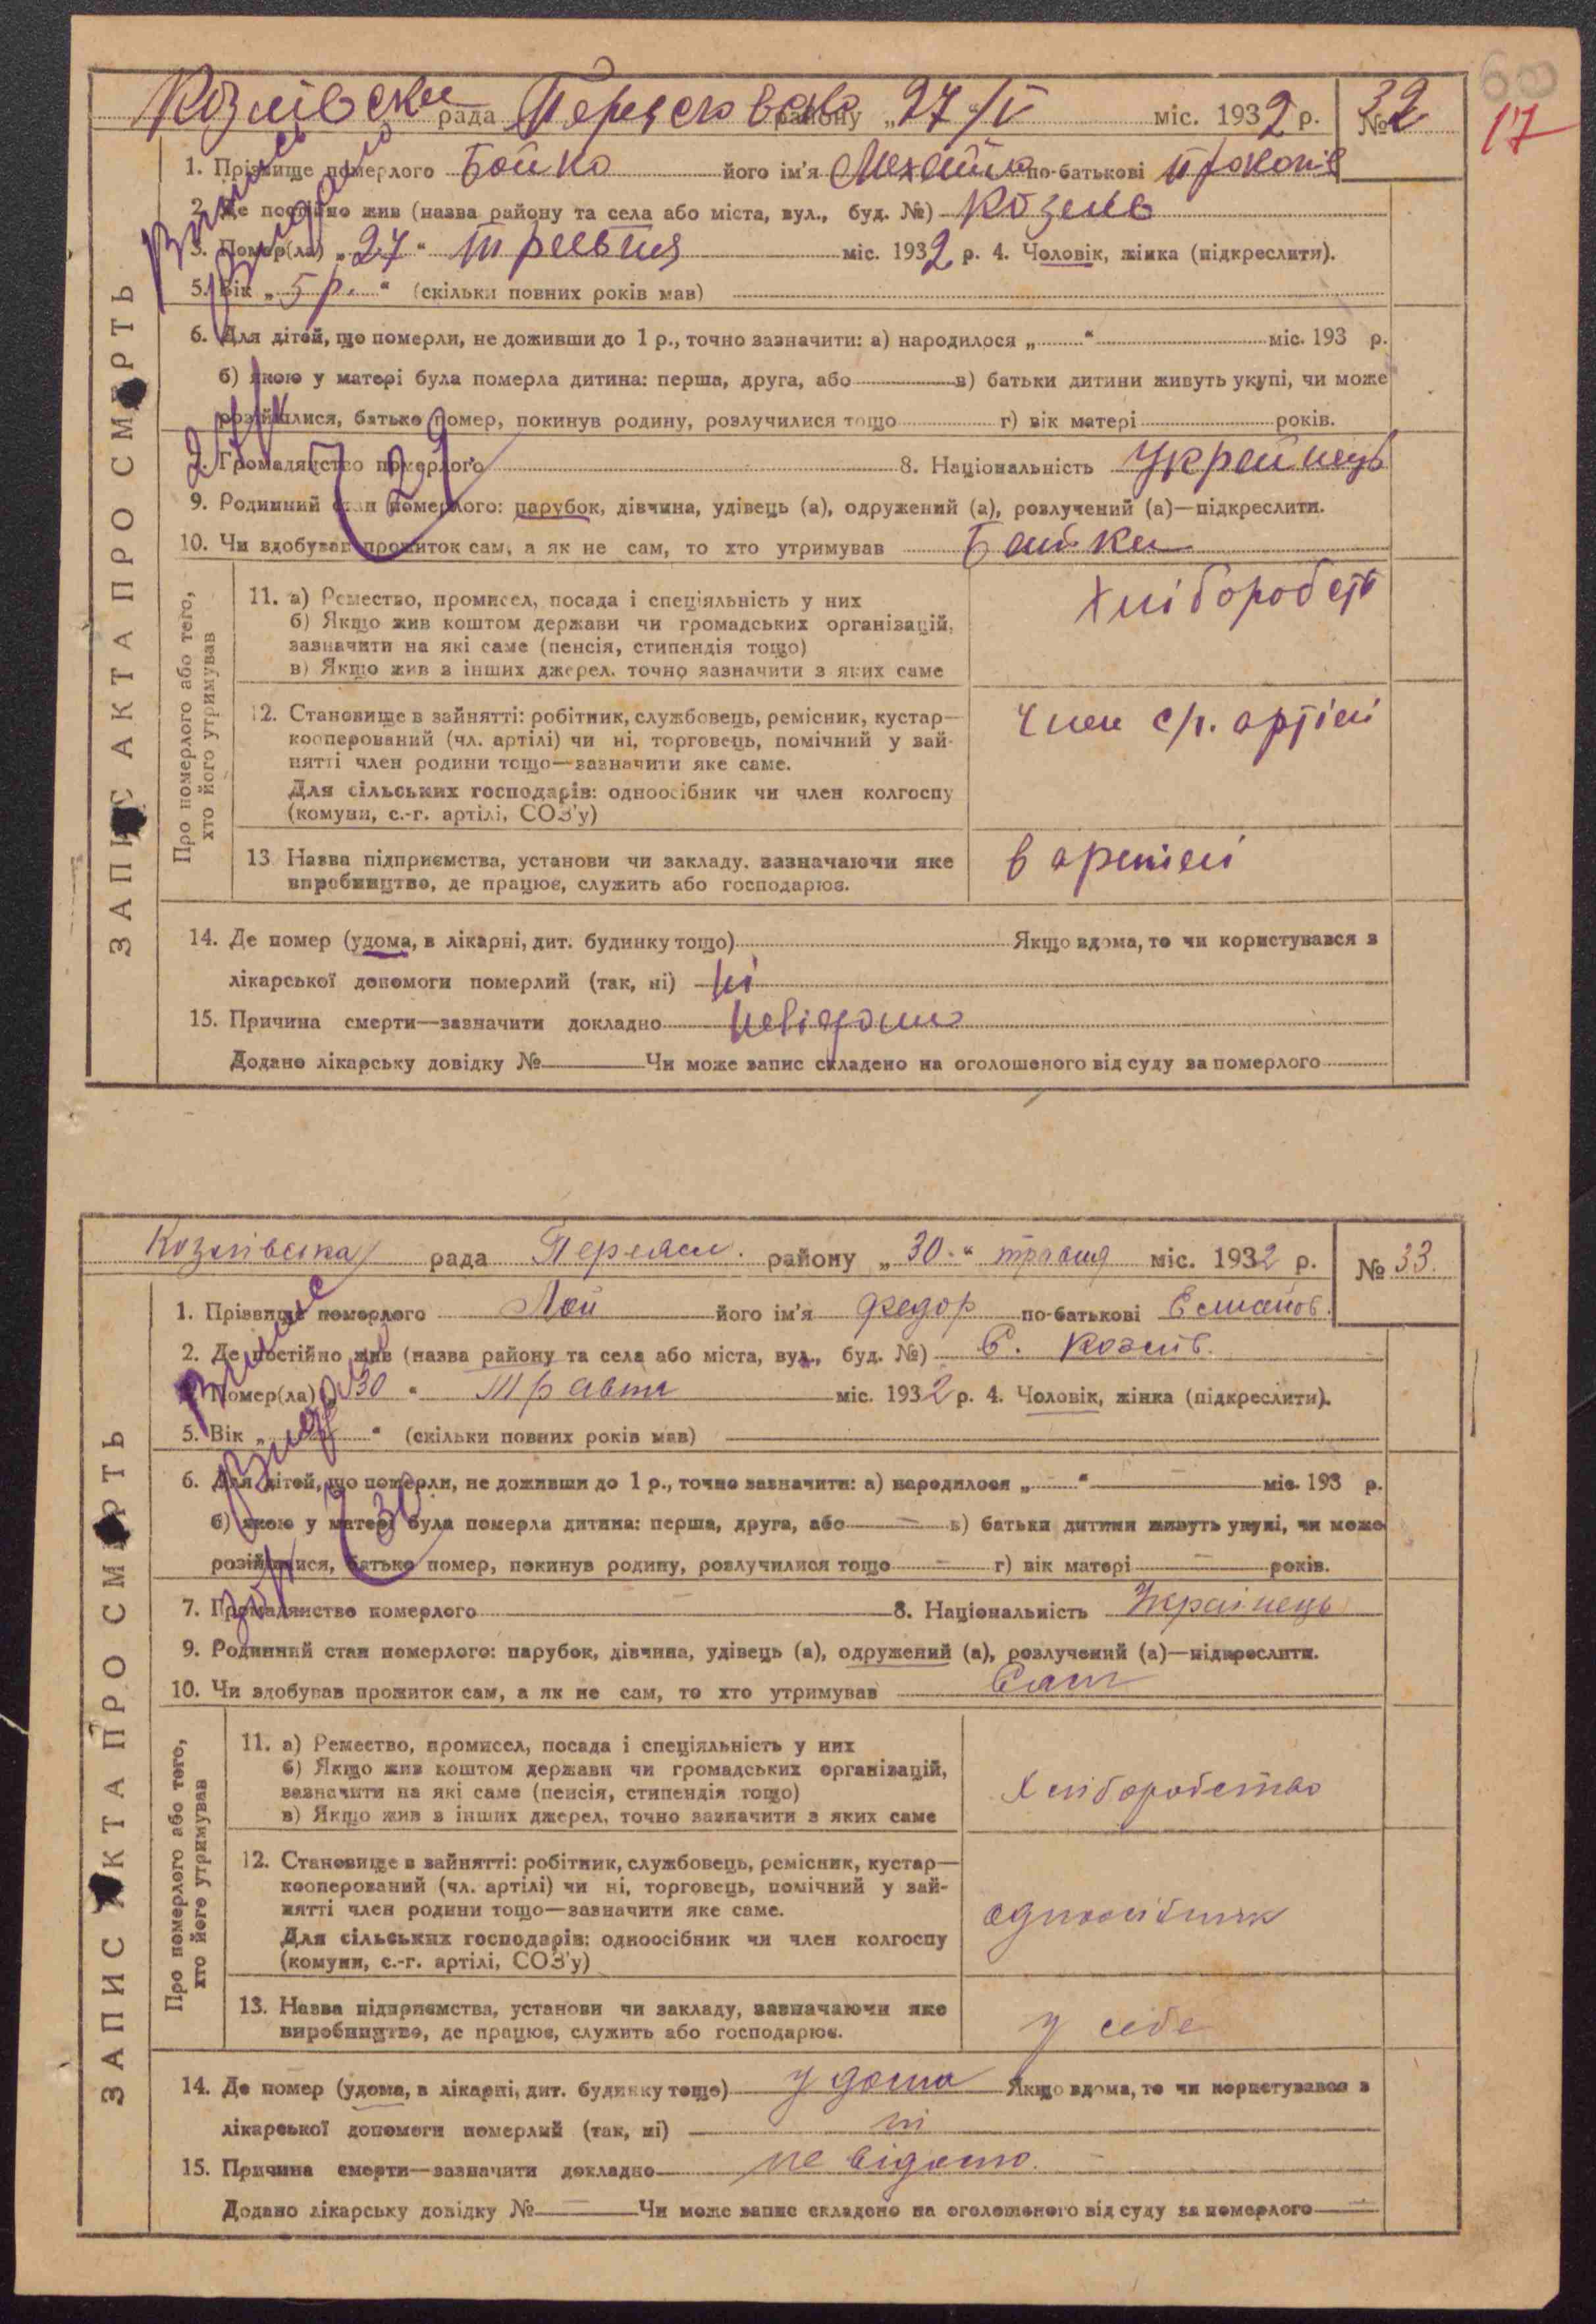 60
17
Козлівська рада Переясловська району „27/V міс. 1932 р. № 32
1. Прізвище померлого Бойко його ім'я Михайло по-батькові Прокопів
2. Де постійно жив (назва району та села або міста, вул., буд. №) Козлів
3. Помер(ла) „27“ травня міс. 1932 р. 4. Чоловік, жінка (підкреслити).
5. Вік „5 р.“ (скільки повних років мав)
6. Для дітей, що померли, не доживши до 1 р., точно зазначити: а) народилося „ “ міс. 193 р.
б) якою у матері була померла дитина: перша, друга, або в) батьки дитини живуть укупі, чи може
розійшлися, батько помер, покинув родину, розлучилися тощо г) вік матері років.
7. Громадянство померлого 8. Національність Украйнець
9. Родинний стан померлого: парубок, дівчина, удівець (а), одружений (а), розлучений (а)—підкреслити.
10. Чи здобував прожиток сам, а як не сам, то хто утримував Батьки
ЗАПИС АКТА ПРО СМЕРТЬ
Про померлого або того, хто його утримував
11. а) Ремество, промисел, посада і спеціяльність у них
б) Якщо жив коштом держави чи громадських організацій,
зазначити на які саме (пенсія, стипендія тощо)
в) Якщо жив з інших джерел, точно зазначити з яких саме
Хліборобств
12. Становище в зайнятті: робітник, службовець, ремісник, кустар—
кооперований (чл. артілі) чи ні, торговець, помічний у зай-
нятті член родини тощо—зазначити яке саме.
Для сільських господарів: одноосібник чи член колгоспу
(комуни, с.-г. артілі, СОЗ'у)
член с/г. артілі
13 Назва підприємства, установи чи закладу, зазначаючи яке
виробництво, де працює, служить або господарює.
в артілі
14. Де помер (удома, в лікарні, дит. будинку тощо) Якщо вдома, то чи користувався з
лікарської допомоги померлий (так, ні) ні
15. Причина смерти—зазначити докладно невідомо
Додано лікарську довідку № Чи може запис складено на оголошеного від суду за померлого
Козлівська рада Переясл. району „30“ травня міс. 1932 р. № 33.
1. Прізвище померлого Лой його ім'я Федор по-батькові
2. Де постійно жив (назва району та села або міста, вул., буд. №) С. Козлів.
Помер(ла) „30“ Травня міс. 1932 р. 4. Чоловік, жінка (підкреслити).
5. Вік „ “ (скільки повних років мав)
6. Для дітей, що померли, не доживши до 1 р., точно зазначити: а) народилося „ “ — міс. 193 р.
б) якою у матері була померла дитина: перша, друга, або — в) батьки дитини живуть укупі, чи може
розійшлися, батько помер, покинув родину, розлучилися тощо — г) вік матері — років.
7. Громадянство померлого 8. Національність Українець
9. Родинний стан померлого: парубок, дівчина, удівець (а), одружений (а), розлучений (а)—підкреслити.
10. Чи здобував прожиток сам, а як не сам, то хто утримував Сам
ЗАПИС АКТА ПРО СМЕРТЬ
Про померлого або того, хто його утримував
11. а) Ремество, промисел, посада і спеціяльність у них
б) Якщо жив коштом держави чи громадських організацій,
зазначити на які саме (пенсія, стипендія тощо)
в) Якщо жив з інших джерел, точно зазначити з яких саме
Хліборобство
12. Становище в зайнятті: робітник, службовець, ремісник, кустар—
кооперований (чл. артілі) чи ні, торговець, помічний у зай-
нятті член родини тощо—зазначити яке саме.
Для сільських господарів: одноосібник чи член колгоспу
(комуни, с.-г. артілі, СОЗ'у)
одноосібник
13. Назва підприємства, установи чи закладу, зазначаючи яке
виробництво, де працює, служить або господарює.
у себе
14. Де помер (удома, в лікарні, дит. будинку тощо) у дома Якщо вдома, то чи користувався з
лікарської допомоги померлий (так, ні) ні
15. Причина смерти—зазначити докладно не відомо.
Додано лікарську довідку № — Чи може запис складено на оголошеного від суду за померлого —